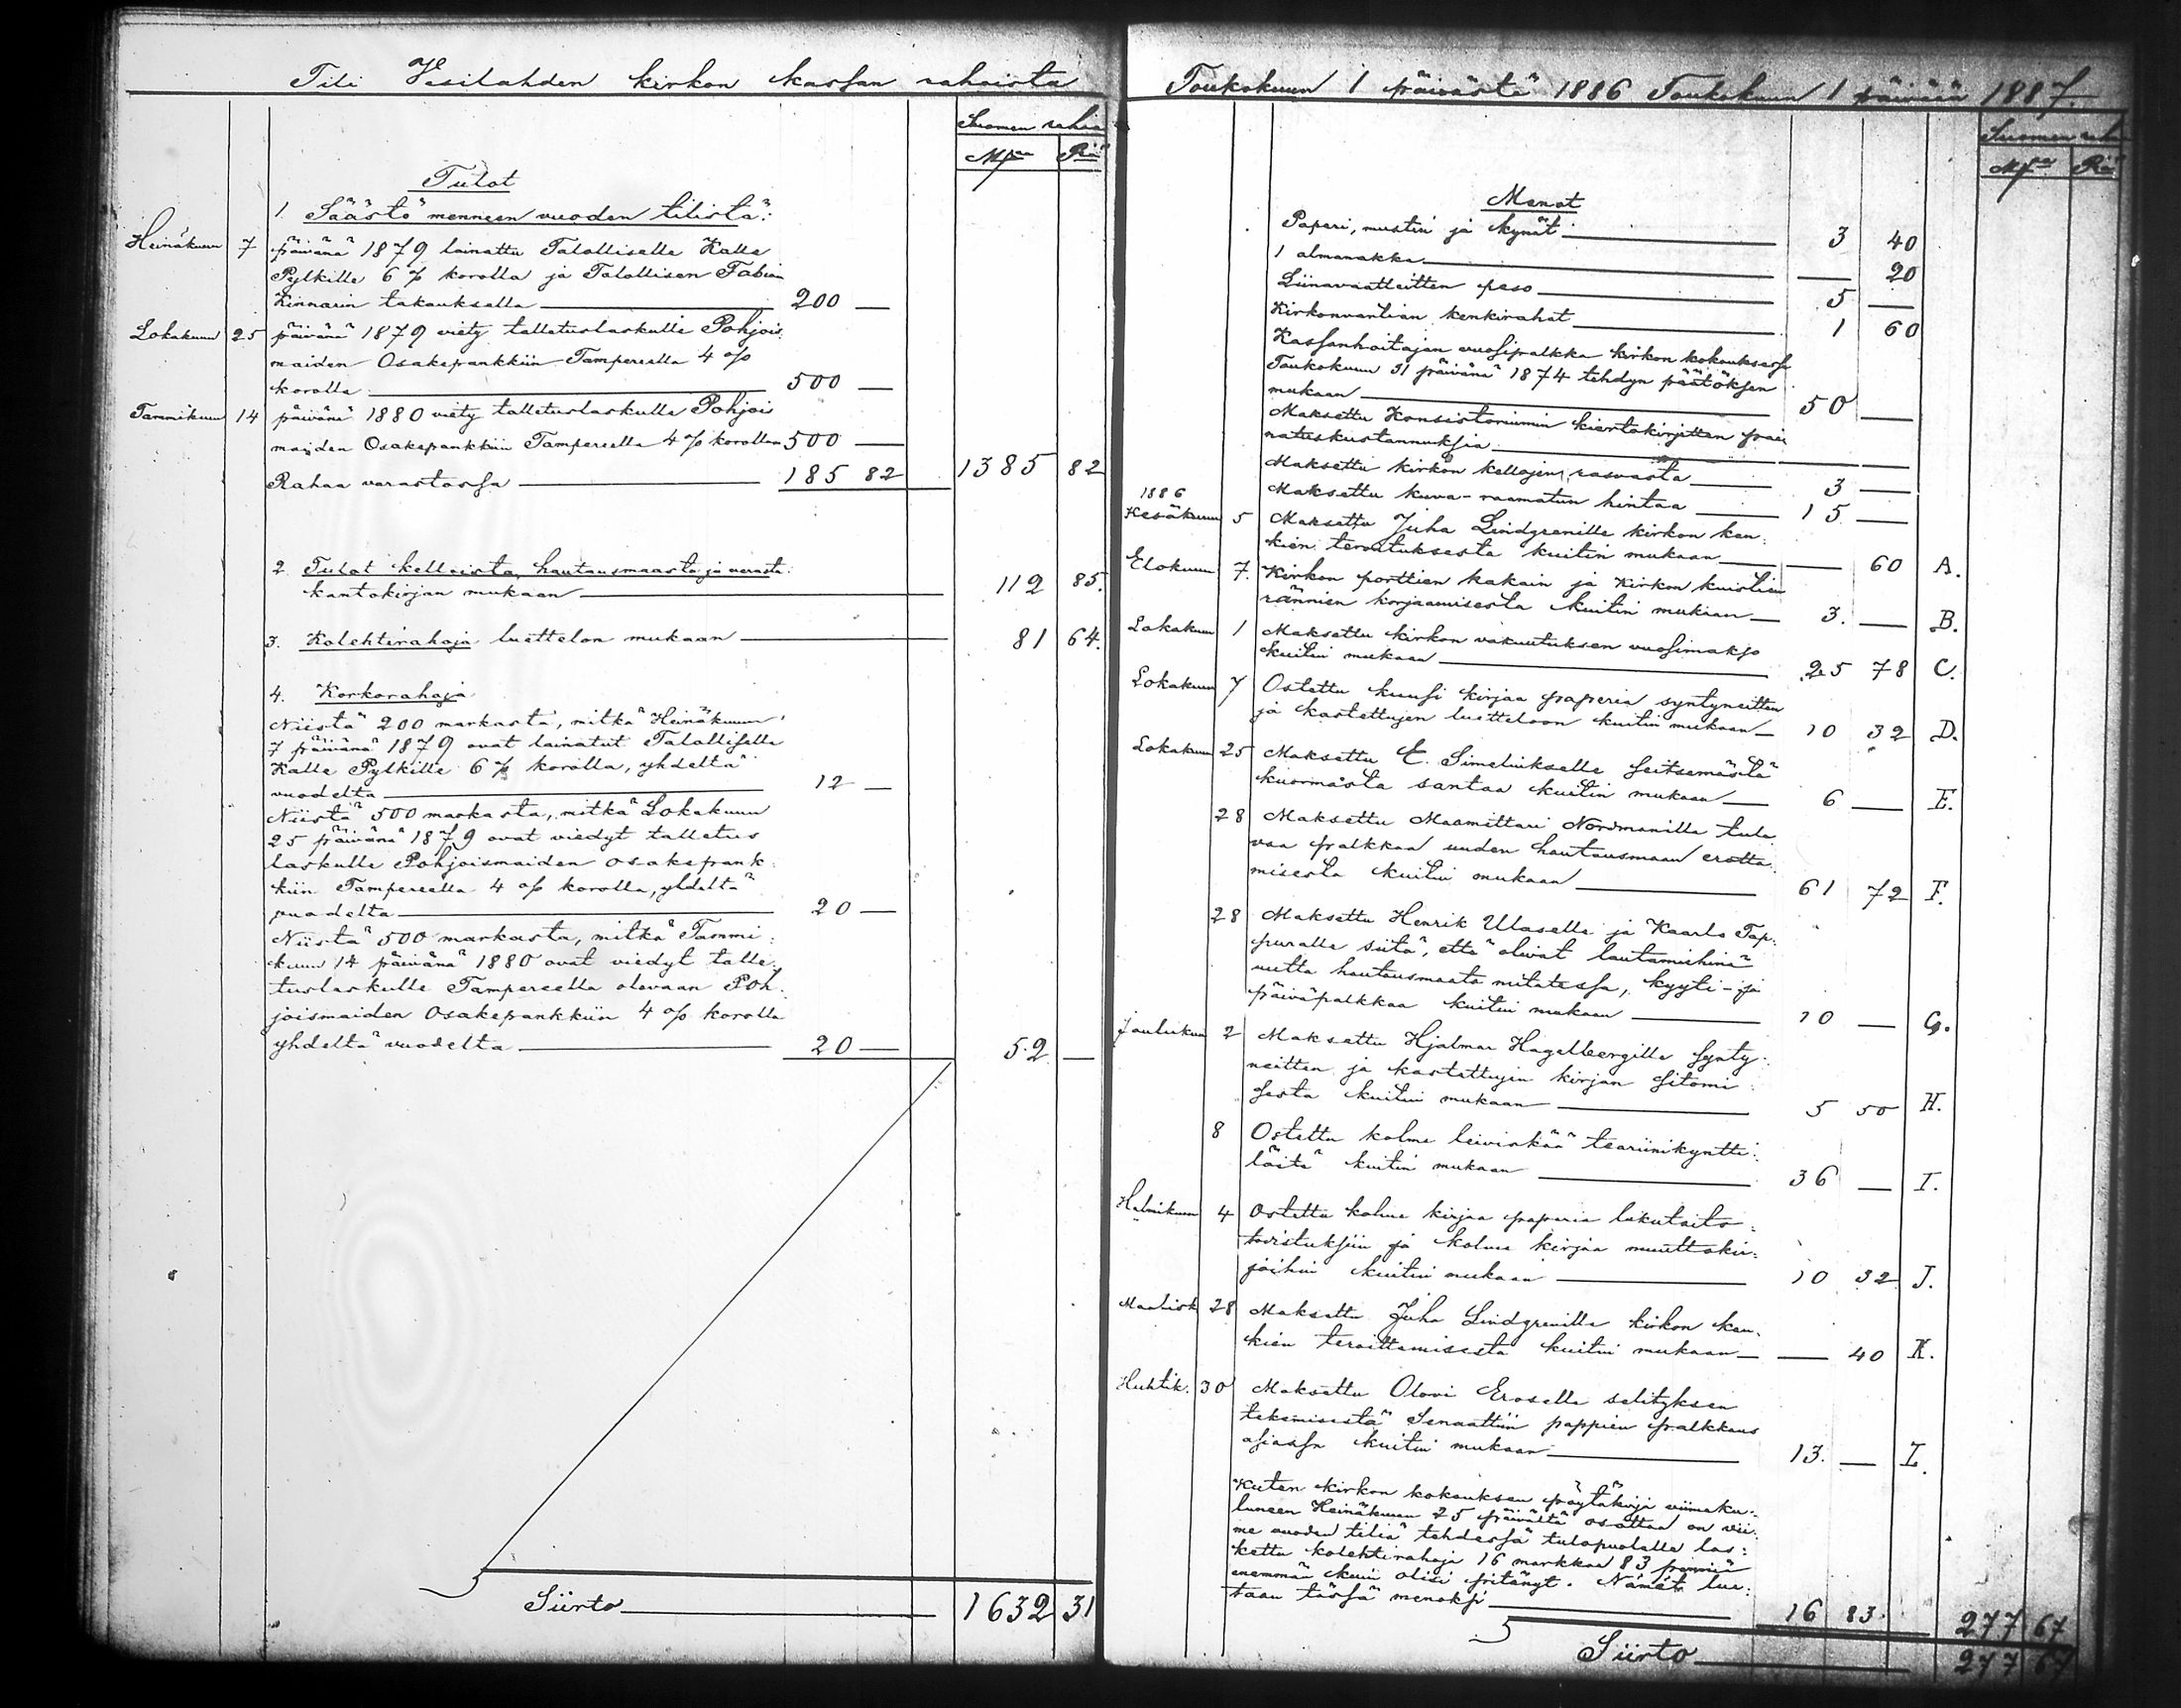 Tili Vesilahden kirkon kassan rahoista
Suomen rahaa
Mkaa Piä
Tulot
1. Säästö menneen vuoden tilistä:
Heinäkuun 7 päivänä 1879 lainattu Talolliselle Kalle
Pylkille 6 % korolla ja Talollisen Fabian
Kinnarin takauksella 200 —
Lokakuun 25 päivänä 1879 viety talletuslaskulle Pohjois
maiden Osakepankkiin Tampereella 4 %
korolla 500 —
Tammikuun 14 päivänä 1880 viety talletuslaskulle Pohjois
maiden Osakepankkiin Tampereella 4 % korollan 500 —
Rahaa varastossa 185 82 1385 82
2. Tulot kelloista, hautausmaasta ja verasta:
kantokirjan mukaan 112 85.
3. Kolehtirahoja luettelon mukaan 81 64.
4. Korkorahoja
Niistä 200 markasta, mitkä Heinäkuun
7 päivänä 1879 ovat lainatut Talolliselle
Kalle Pylkille 6 % korolla, yhdeltä
vuodelta 12 —
Niistä 500 markasta, mitkä Lokakuun
25 päivänä 1879 ovat viedyt talletus
laskulle Pohjoismaiden osakepank:
kiin Tampereella 4 % korolla, yhdeltä
vuodelta 20 —
Niistä 500 markasta, mitkä Tammi:
kuun 14 päivänä 1880 ovat viedyt talle:
tuslaskulle Tampereella olevaan Poh:
joismaiden Osakepankkiin 4 % korolla
yhdeltä vuodelta 20 — 52 —
Siirto 1632 31
Toukokuun 1 päivästä 1886 Toukokuun 1 päivään 1887.
Suomen raha
Mkaa Piä
Menot
Paperi, mustin ja kynät 3 40
1 almanakka — 20
Liinavaatteitten peso 5 —
Kirkonvartian kenkirahat 1 60
Kassanhoitajan vuosipalkka kirkon kokouksessa
Toukokuun 31 päivänä 1874 tehdyn päätöksen
mukaan 50 —
Maksettu Konsistoriumin kiertokirjetten pai
natuskustannuksia — —
Maksettu kirkon kellojen rasvasta 3 —
Maksettu kuva-raamatun hintaa 15 —
1886
Kesäkuun 5 Maksettu Juha Lindgrenille kirkon ken:
kien teroituksesta kuitin mukaan — 60 A.
Elokuun 7. Kirkon porttien hakain ja Kirkon kuistien
rännien korjaamisesta kuitin mukaan 3. — B.
Lokakuun 1 Maksettu kirkon vakuutuksen vuosimakso
kuitin mukaan 25 78 C.
Lokakuun 7 Ostettu kuusi kirjaa paperia syntyneitten
ja kastettujen luetteloon kuitin mukaan 10 32 D.
Lokakuun 25 Maksettu E. Simeliukselle seitsemästä
kuormasta santaa kuitin mukaan 6 — E.
28 Maksettu Maamittari Nordmanille tule
vaa palkkaa uuden hautausmaan erotta:
misesta kuitin mukaan 61 72 F.
28 Maksettu Henrik Ulaselle ja Kaarlo Tap:
puralle siitä, että olivat lautamiehinä
uutta hautausmaata mitatessa, kyyti- ja
päiväpalkkaa kuitin mukaan 10 — G.
Joulukuu 2 Maksettu Hjalmar Hagelbergille synty:
neitten ja kastettujen kirjan sitomi
sesta kuitin mukaan 5 50 H.
8 Ostettu kolme leiviskää teariinikyntti:
löitä kuitin mukaan 36 — I.
Helmikuun 4 Ostettu kolme kirjaa paperia lukutaito:
todistuksiin ja kolme kirjaa muuttokir:
joihin kuitin mukaan 10 32 J.
Maalisk 28 Maksettu Juha Lindgrenille kirkon ken:
kien teroittamisesta kuitin mukaan — 40 K.
Huhtik. 30 Maksettu Olovi Eroselle selityksen
tekemisestä Senaattiin pappien palkkaus
asiassa kuitin mukaan 13. — L.
Kuten kirkon kokouksen pöytäkirja viimeku:
luneen Heinäkuun 25 päivältä osottaa on vii:
me vuoden tiliä tehdessä tulopuolelle las:
kettu kolehtirahoja 16 markkaa 83 penniä
enemmän kuin olisi pitänyt. Nämät lue:
taan tässä menoksi 16 83. 277 67
Siirto 277 67